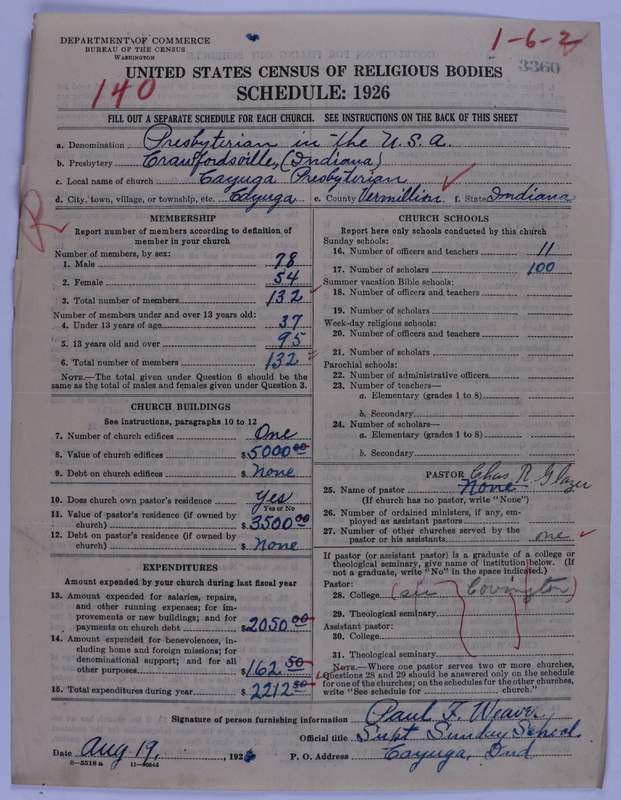 DEPARTMENT OF COMMERCE
BUREAU OF THE CENSUS
WASHINGTON
1-6-2
3360
140
UNITED STATES CENSUS OF RELIGIOUS BODIES
SCHEDULE: 1926
FILL OUT A SEPARATE SCHEDULE FOR EACH CHURCH. SEE INSTRUCTIONS ON THE BACK OF THIS SHEET
a. Denomination Presbyterian in the U.S.A.
b. Presbytery Crawfordsville, (Indiana)
c. Local name of church Cayuga Presbyterian
d. City, town, village, or township, etc. Cayuga e. County Vermillion f. State Indiana
MEMBERSHIP
Report number of members according to definition of
member in your church
Number of members, by sex:
1. Male 78
2. Female 54
3. Total number of members 132
Number of members under and over 13 years old:
4. Under 13 years of age 37
5. 13 years old and over 95
6. Total number of members 132
NOTE.—The total given under Question 6 should be the
same as the total of males and females given under Question 3.
CHURCH BUILDINGS
See instructions, paragraphs 10 to 12
7. Number of church edifices One
8. Value of church edifices $5000 00
9. Debt on church edifices $ None
10. Does church own pastor's residence Yes
Yes or No
11. Value of pastor's residence (if owned by
church) $3500 00
12. Debt on pastor's residence (if owned by
church) $ None
EXPENDITURES
Amount expended by your church during last fiscal year
13. Amount expended for salaries, repairs,
and other running expenses; for im-
provements or new buildings; and for
payments on church debt $2050 00
14. Amount expended for benevolences, in-
cluding home and foreign missions; for
denominational support; and for all
other purposes $162 50
15. Total expenditures during year $ 2212 50
CHURCH SCHOOLS
Report here only schools conducted by this church
Sunday schools:
16. Number of officers and teachers 11
17. Number of scholars 100
Summer vacation Bible schools:
18. Number of officers and teachers
19. Number of scholars
Week-day religious schools:
20. Number of officers and teachers
21. Number of scholars
Parochial schools:
22. Number of administrative officers
23. Number of teachers—
a. Elementary (grades 1 to 8)
b. Secondary
24. Number of scholars—
a. Elementary (grades 1 to 8)
b. Secondary
PASTOR Chas R. Glazer
25. Name of pastor None
(If church has no pastor, write "None")
26. Number of ordained ministers, if any, em-
ployed as assistant pastors
27. Number of other churches served by the
pastor or his assistants one
If pastor (or assistant pastor) is a graduate of a college or
theological seminary, give name of institution below. (If
not a graduate, write "No" in the space indicated.)
Pastor:
28. College (see Covington)
29. Theological seminary
Assistant pastor:
30. College
31. Theological seminary
NOTE.—Where one pastor serves two or more churches,
Questions 28 and 29 should be answered only on the schedule
for one of the churches; on the schedules for the other churches,
write "See schedule for church."
Signature of person furnishing information Paul F. Weaver
Official title Supt Sunday School
Date Aug 19, 192 P. O. Address Cayuga, Ind
8-5518 a